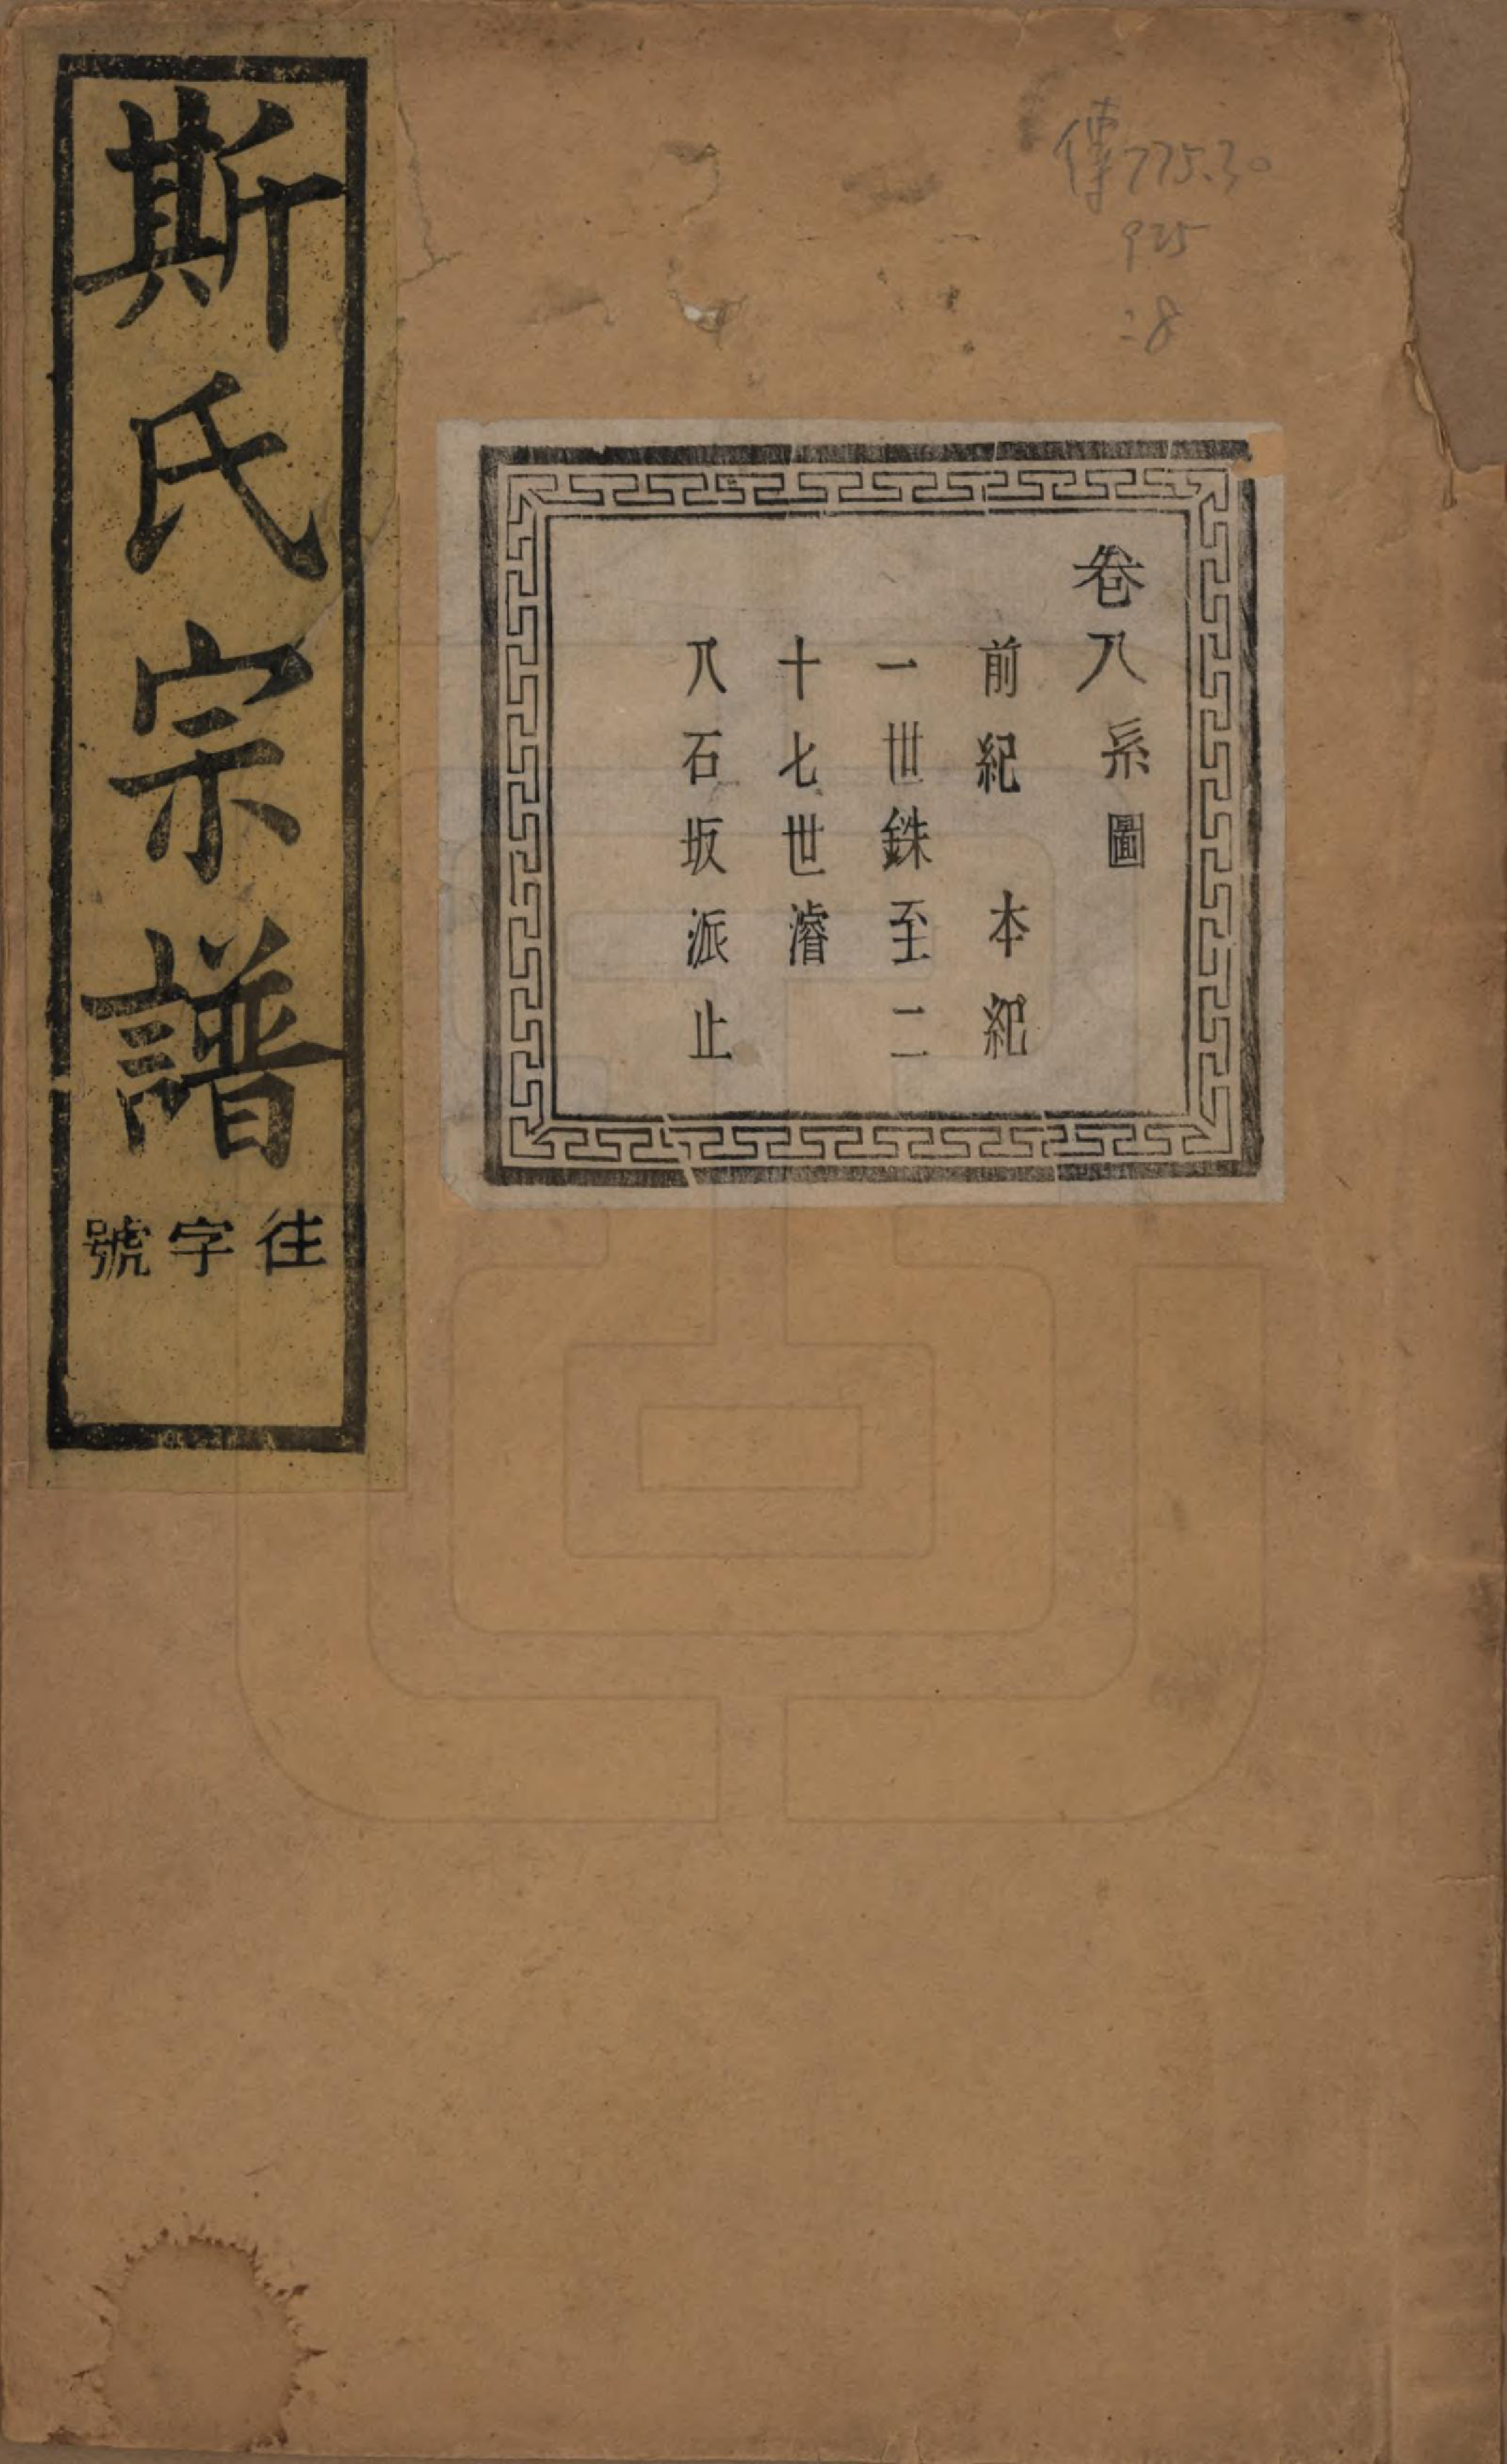 傳775.30
925
:8
卷八系圖
前紀 本紀
一世銖至二
十七世濬
八石坂派止
斯氏宗譜
往字號